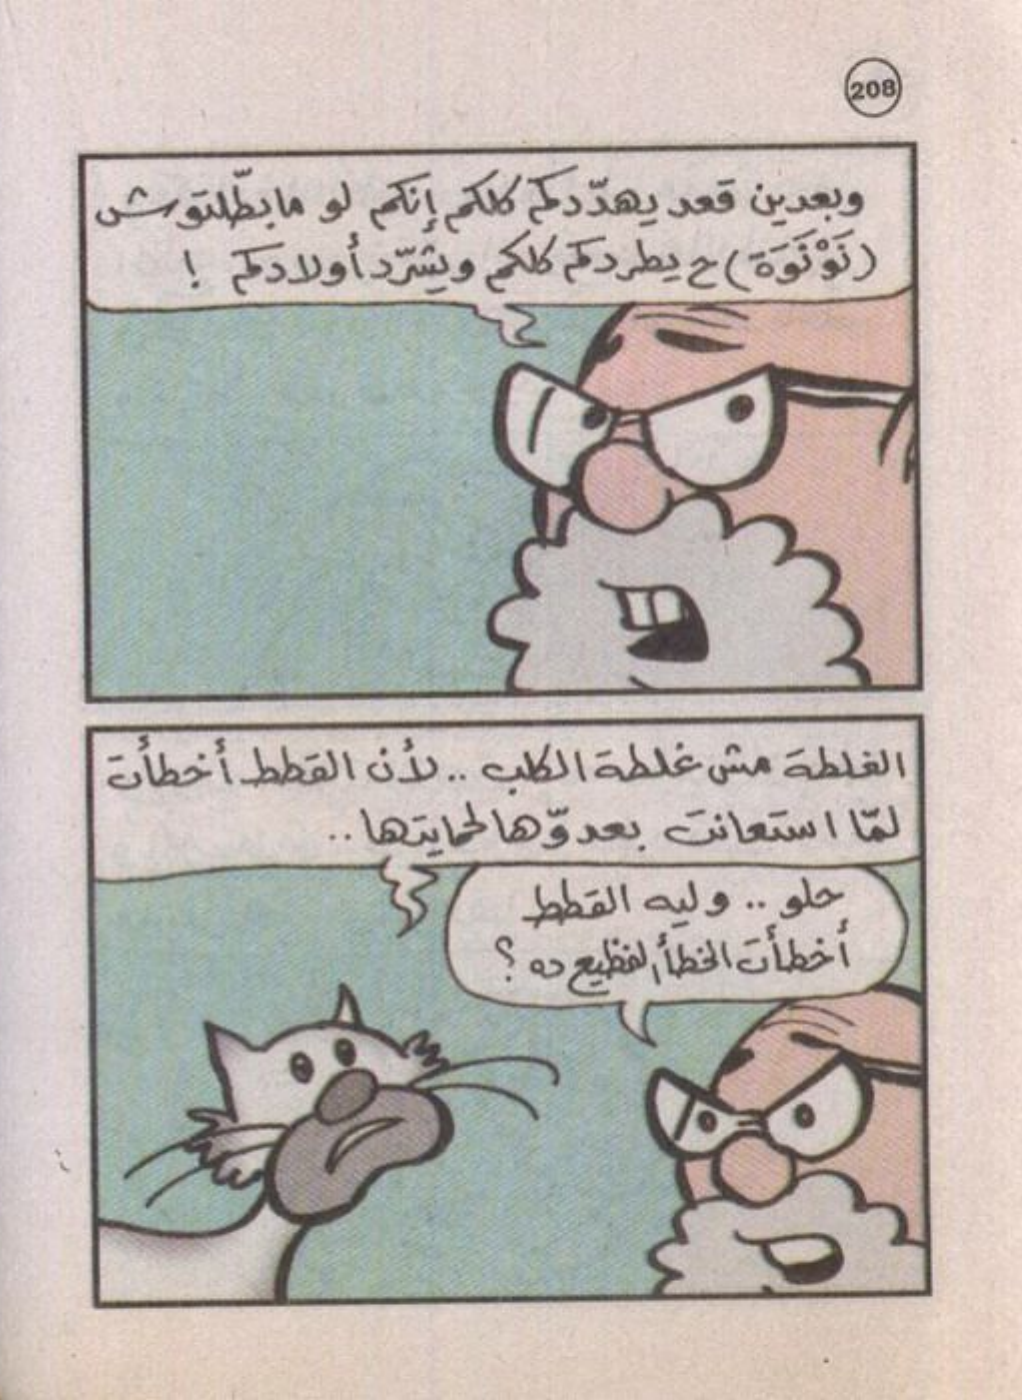 208
وبعدين قعد يهدّدكم كلكم إنكم لو ما بطّلتوش
(نَوْنَوَة) ح يطردكم كلكم ويشرّد أولادكم !
الغلطة مش غلطة الكلب .. لأن القطط أخطأت
لمّا استعانت بعدوّها لحمايتها ..
حلو .. وليه القطط
أخطأت الخطأ الفظيع ده ؟